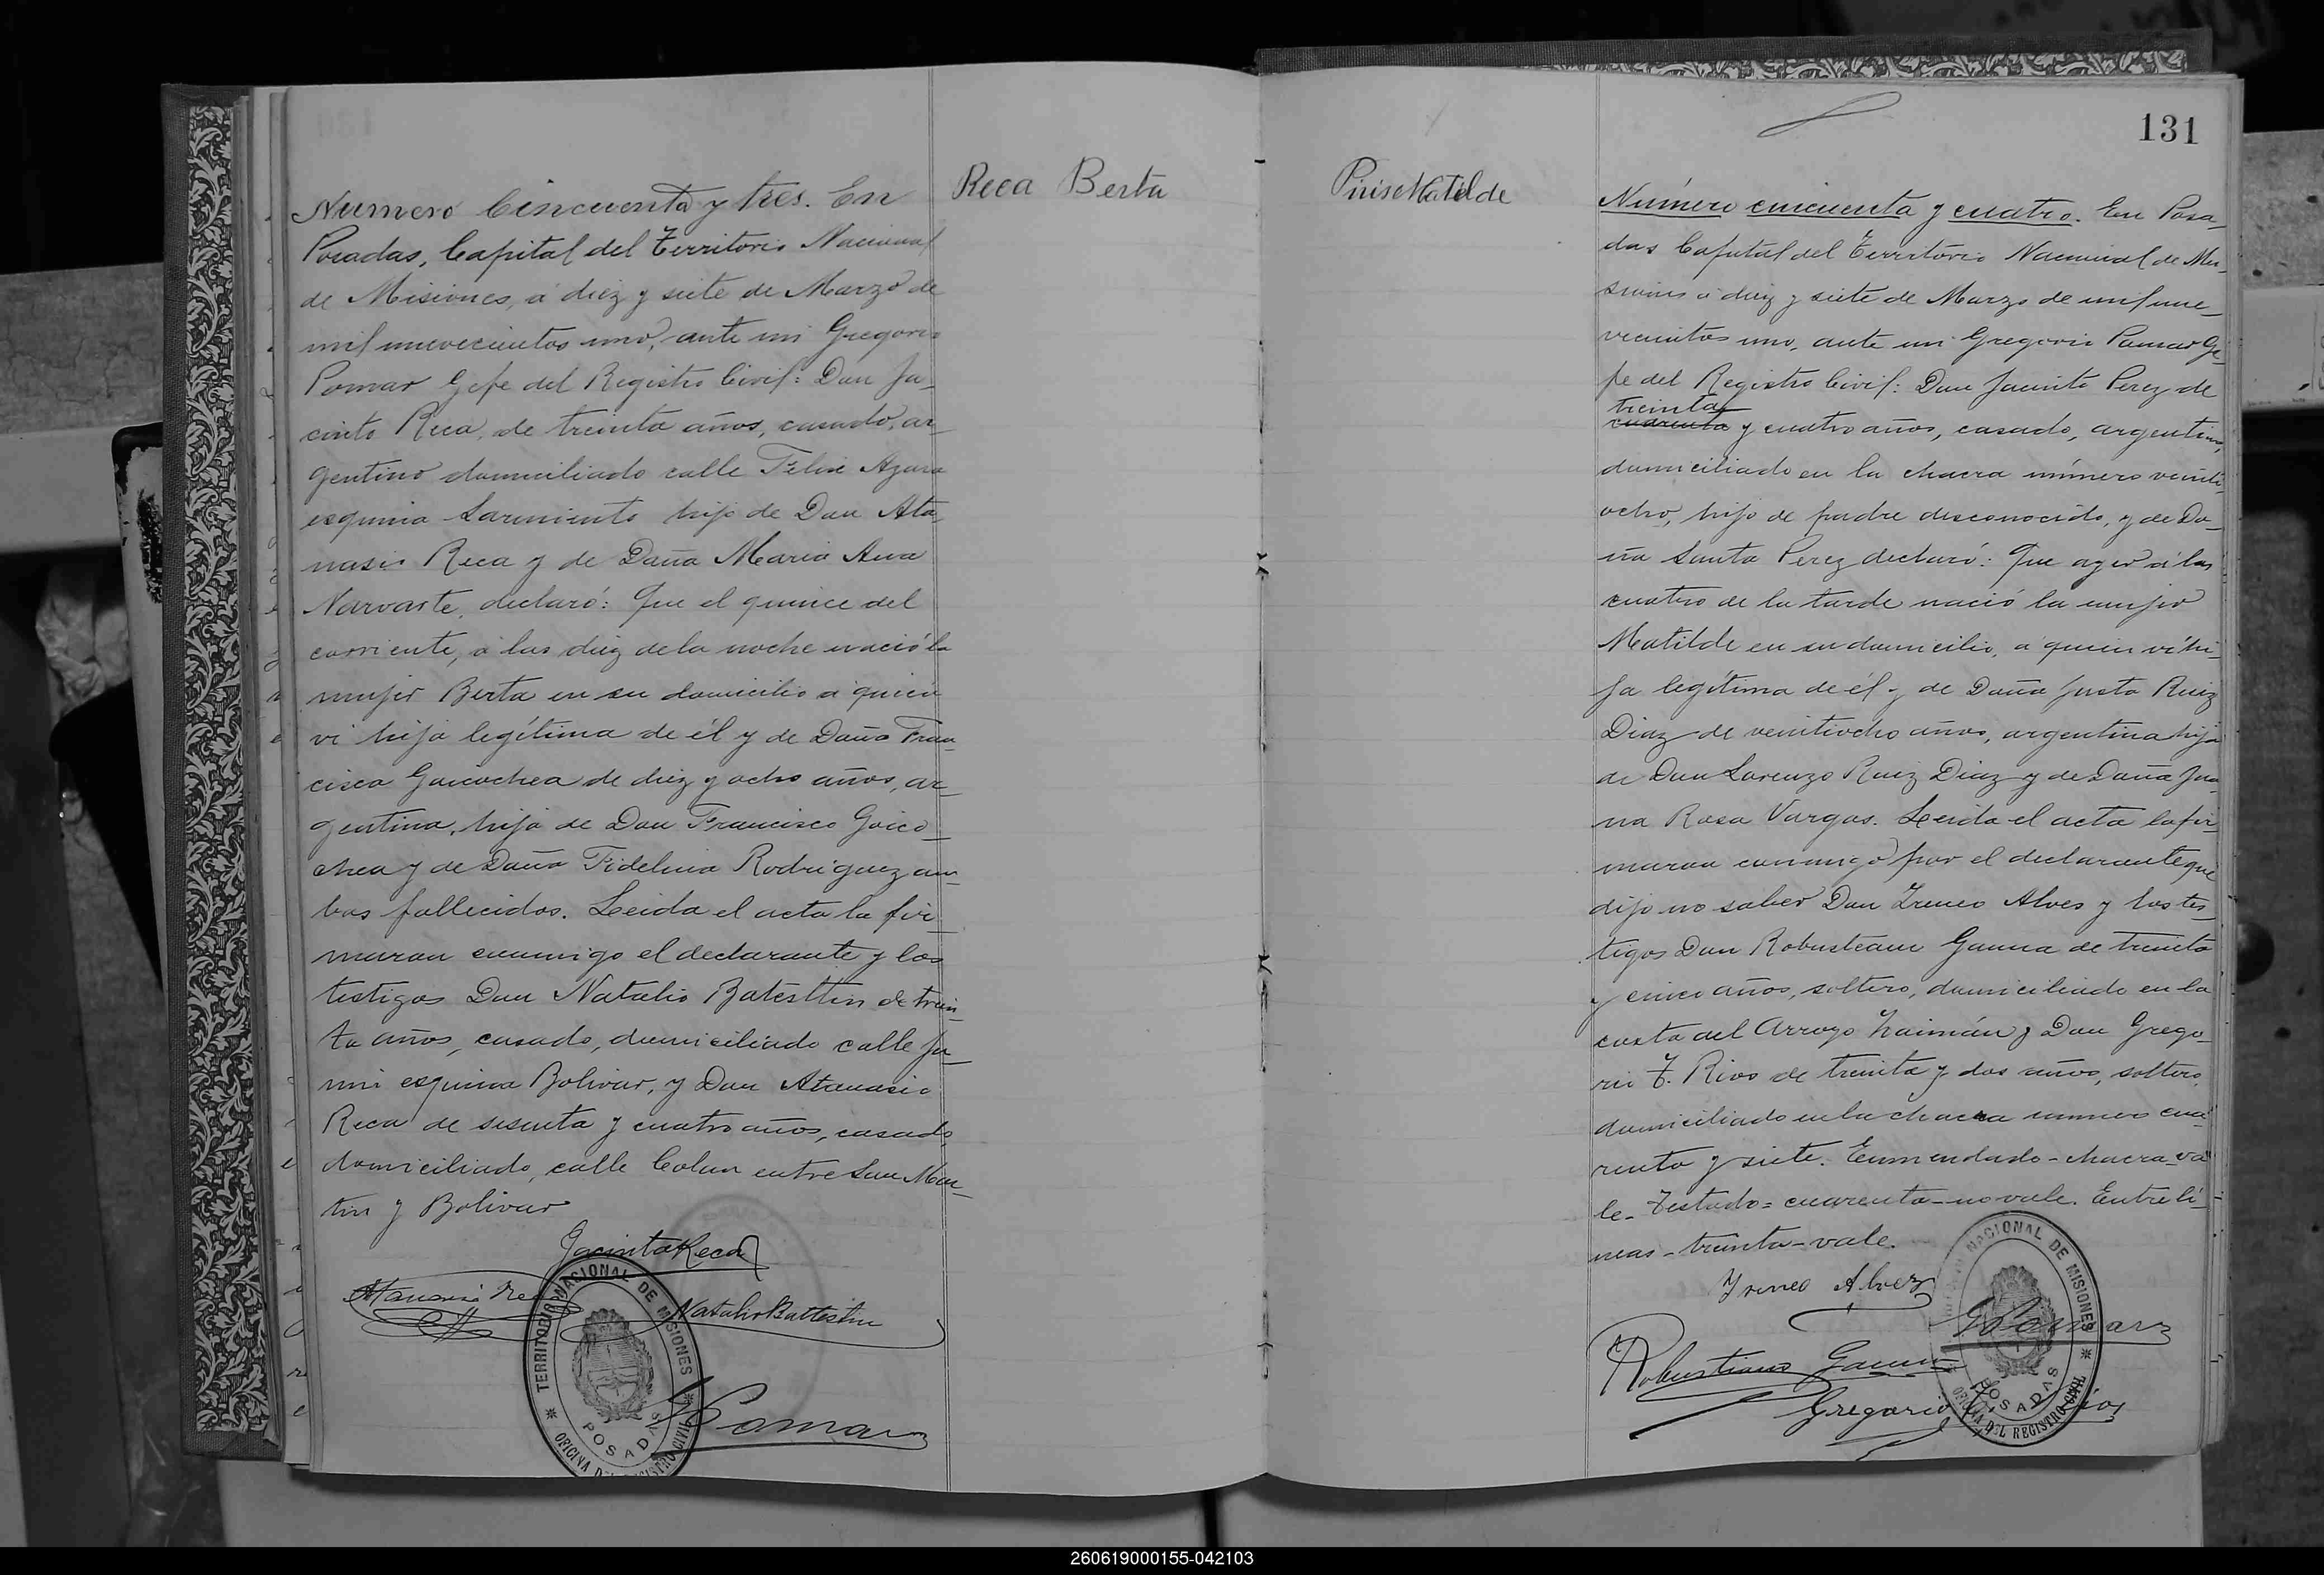 Reca Berta
Numero Cincuenta y tres. En
Posadas, Capital del Territorio Nacional
de Misiones, á diez y siete de Marzo de
mil nuevecientos uno, ante mi Gregorio
Pomar Gefe del Registro Civil: Don Ja-
cinto Reca, de treinta años, casado, ar-
gentino domiciliado calle Felix Azara
esquina Sarmiento hijo de Don Ata-
nasio Reca y de Doña Maria Ana
Narvarte, declaró: Que el quince del
corriente, á las diez de la noche nació la
mujer Berta en su domicilio á quien
vi hija legítima de él y de Doña Fran-
cisca Goicochea de diez y ocho años, ar-
gentina, hija de Don Francisco Goico-
chea y de Doña Fidelina Rodriguez am-
bos fallecidos. Leida el acta la fir-
maron conmigo el declarante y los
testigos Don Natalio Batesttin de trein-
ta años, casado, domiciliado calle Ju-
nin esquina Bolivar, y Don Atanasio
Reca de sesenta y cuatro años, casado
domiciliado, calle Colon entre San Mar-
tin y Bolivar
Jacinto Reca
Atanasio Reca
Natalio Battestin
TERRITORIO NACIONAL DE MISIONES
POSADAS
OFICINA DEL REGISTRO CIVIL
GPomar
131
Matilde
Número cincuenta y cuatro. En Posa-
das Capital del Territorio Nacional de Mi-
siones á diez y siete de Marzo de mil nue-
vecientos uno, ante mi Gregorio Pomar Ge-
fe del Registro Civil: Don Jacinto Perez de
treinta
cuarenta y cuatro años, casado, argentino,
domiciliado en la chacra número veinti-
ocho, hijo de padre desconocido, y de Do-
ña Santa Perez declaró: Que ayer á las
cuatro de la tarde nació la mujer
Matilde en su domicilio, á quien ví hi-
ja legítima de él y de Doña Justa Ruiz
Diaz de veintiocho años, argentina hija
de Don Lorenzo Ruiz Diaz y de Doña Jua-
na Rosa Vargas. Leida el acta la fir-
maron conmigo por el declarante que
dijo no saber Don Ireneo Alves y los tes-
tigos Don Robusteano Gauna de treinta
y cinco años, soltero, domiciliado en la
costa del Arroyo Zaimán y Don Grego-
rio T. Rios de treinta y dos años, soltero,
domiciliado en la chacra numero cua-
renta y siete. Enmendado - chacra - va-
le - Testado = cuarenta - no vale. Entre li-
neas - treinta - vale.
Yreneo Alvez
GPomar
Robustiano Gauna
Gregorio T. Rios
NACIONAL DE MISIONES
POSADAS
OFICINA DEL REGISTRO CIVIL
260619000155-042103